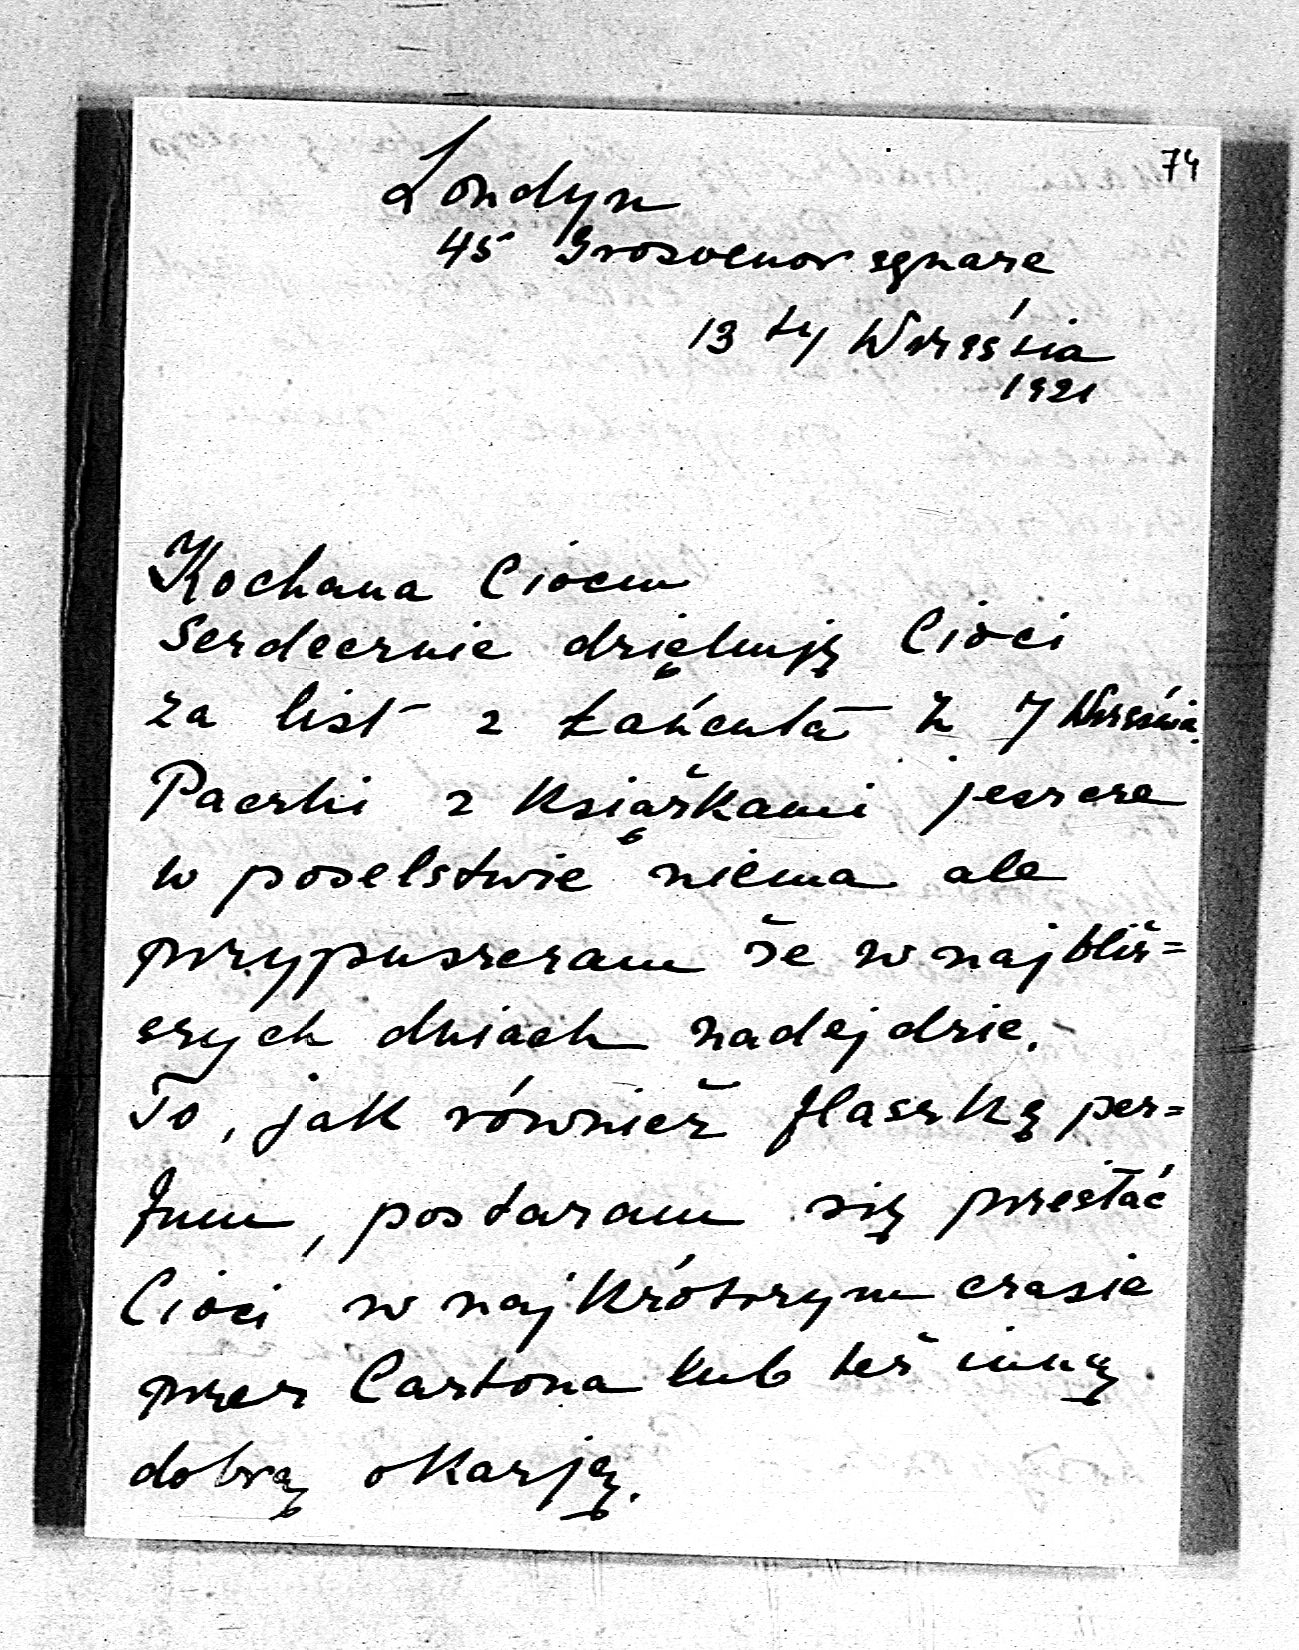 74
Londyn
45 Grosvenor sqnare
13 ty Września
1921
Kochana Ciociu
Serdecznie dziękuję Cioci
za list z Łańcuta z 7 Września.
Paczki z książkami jeszcze
w poselstwie niema ale
przypuszczam że w najbliż=
szych dniach nadejdzie.-
To, jak również flaszkę per=
fum, postaram się przesłać
Cioci w najkrótszym czasie
przez Cartona lub też inną
dobrą okazją.